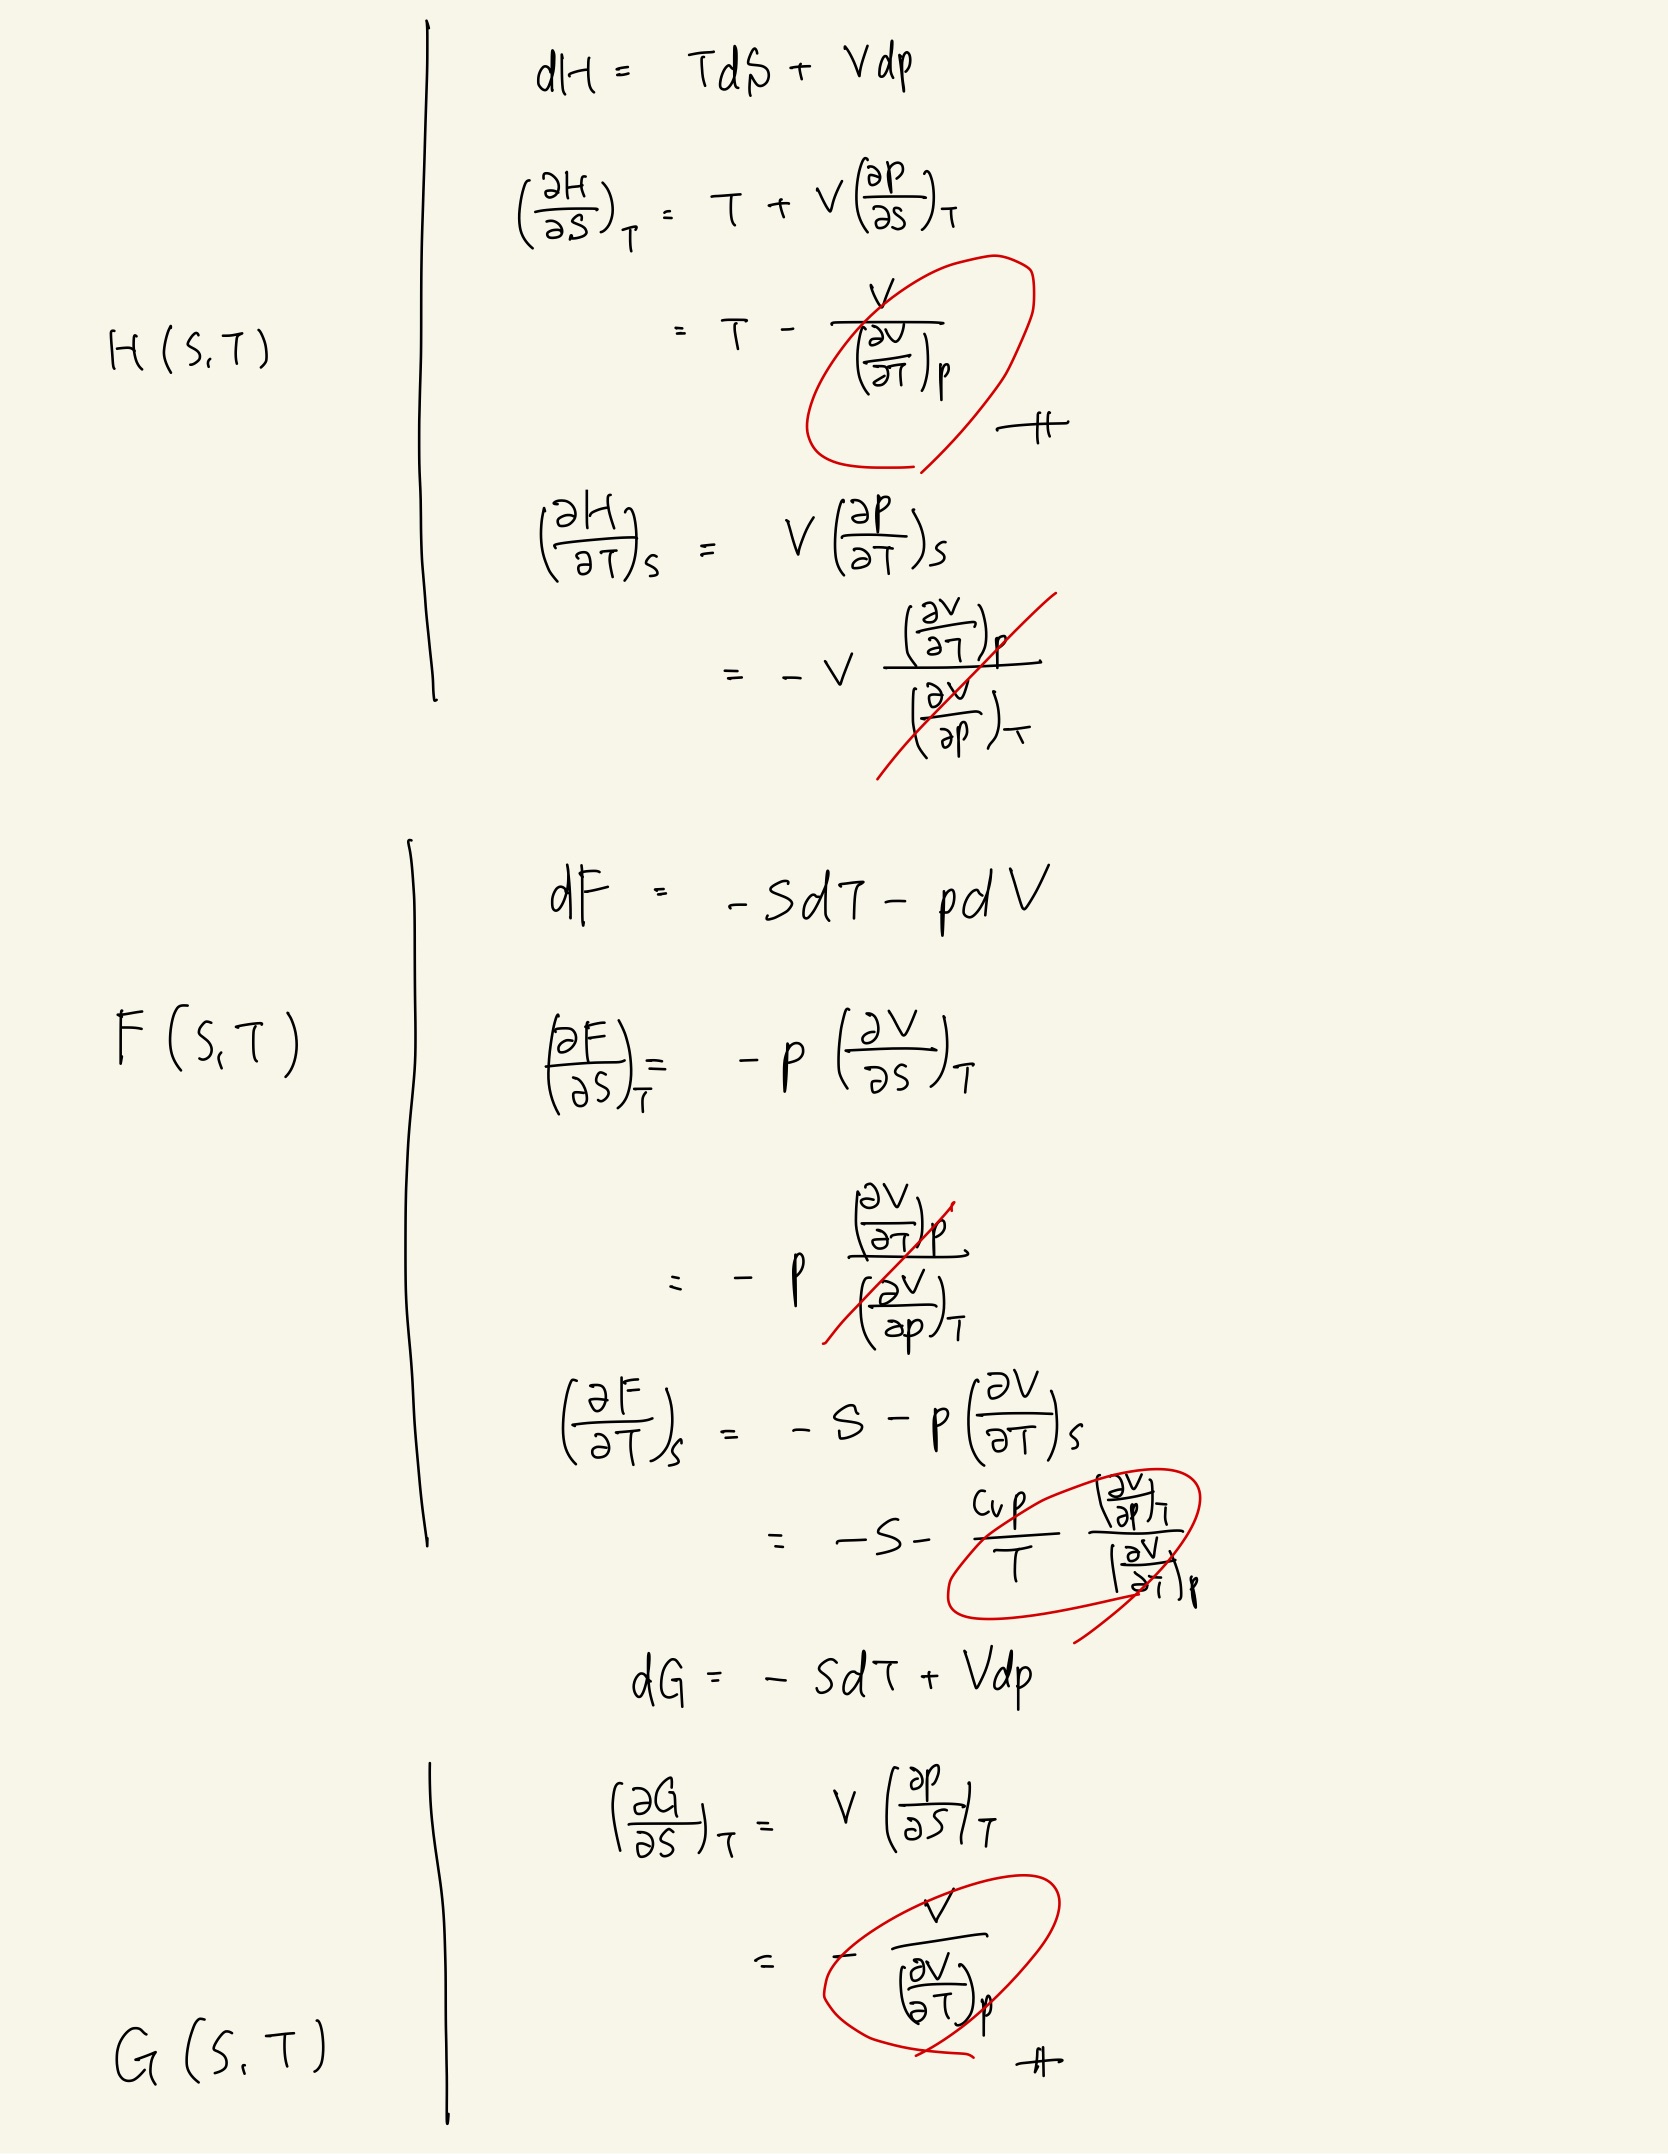 dH = TdS + Vdp
(∂H/∂S)_T = T + V(∂P/∂S)_T
= T - V/(∂V/∂T)_p
H(S,T)
(∂H/∂T)_S = V(∂P/∂T)_S
= - V (∂V/∂T)_p/(∂V/∂p)_T
dF = - SdT - pdV
F(S,T)
(∂F/∂S)_T = - p (∂V/∂S)_T
= - p (∂V/∂T)_p/(∂V/∂p)_T
(∂F/∂T)_S = - S - p(∂V/∂T)_S
= - S - Cvp/T (∂V/∂p)_T/(∂V/∂T)_p
dG = - SdT + Vdp
(∂G/∂S)_T = V (∂P/∂S)_T
= - V/(∂V/∂T)_p
G(S,T)